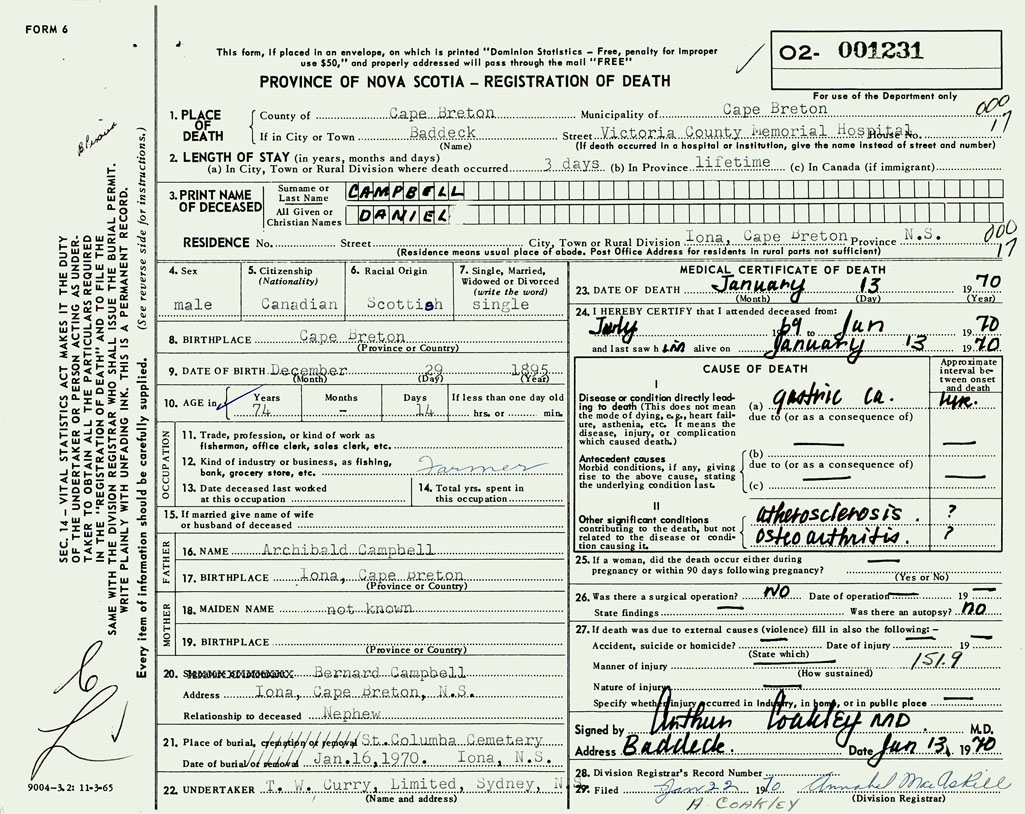 FORM 6
This form, if placed in an envelope, on which is printed "Dominion Statistics – Free, penalty for improper
use $50," and properly addressed will pass through the mail "FREE"
PROVINCE OF NOVA SCOTIA – REGISTRATION OF DEATH
O2- 001231
For use of the Department only
000
17
1. PLACE OF DEATH
County of Cape Breton Municipality of Cape Breton
If in City or Town Baddeck Street Victoria County Memorial Hospital House No.
(Name) (If death occurred in a hospital or institution, give the name instead of street and number)
2. LENGTH OF STAY (in years, months and days)
(a) In City, Town or Rural Division where death occurred 3 days (b) In Province lifetime (c) In Canada (if immigrant)
3. PRINT NAME OF DECEASED
Surname or Last Name CAMPBELL
All Given or Christian Names DANIEL
RESIDENCE No. Street City, Town or Rural Division Iona, Cape Breton Province N.S.
(Residence means usual place of abode. Post Office Address for residents in rural parts not sufficient)
000
17
4. Sex male
5. Citizenship (Nationality) Canadian
6. Racial Origin Scottish
7. Single, Married, Widowed or Divorced (write the word) single
8. BIRTHPLACE Cape Breton
(Province or Country)
9. DATE OF BIRTH December 29 1895
(Month) (Day) (Year)
10. AGE in Years Months Days If less than one day old
74 - 14 hrs. or min.
OCCUPATION
11. Trade, profession, or kind of work as
fisherman, office clerk, sales clerk, etc.
12. Kind of industry or business, as fishing,
bank, grocery store, etc. Farmer
13. Date deceased last worked
at this occupation
14. Total yrs. spent in
this occupation
15. If married give name of wife
or husband of deceased
FATHER
16. NAME Archibald Campbell
17. BIRTHPLACE Iona, Cape Breton
(Province or Country)
MOTHER
18. MAIDEN NAME not known
19. BIRTHPLACE
(Province or Country)
20. Bernard Campbell
Address Iona, Cape Breton, N.S.
Relationship to deceased Nephew
21. Place of burial, cremation or removal St. Columba Cemetery
Date of burial or removal Jan.16,1970. Iona, N.S.
22. UNDERTAKER T. W. Curry, Limited, Sydney, N.S.
(Name and address)
MEDICAL CERTIFICATE OF DEATH
23. DATE OF DEATH January 13 1970
(Month) (Day) (Year)
24. I HEREBY CERTIFY that I attended deceased from:
July 1969 to Jan 1970
and last saw him alive on January 13 1970
CAUSE OF DEATH
Approximate interval between onset and death
I
Disease or condition directly leading to death (This does not
mean the mode of dying, e.g., heart failure, asthenia, etc. It means the
disease, injury, or complication
which caused death.)
(a) gastric ca. 1yr.
due to (or as a consequence of)
Antecedent causes
Morbid conditions, if any, giving
rise to the above cause, stating
the underlying condition last.
(b)
due to (or as a consequence of)
(c)
II
Other significant conditions
contributing to the death, but not
related to the disease or condition
causing it.
atherosclerosis. ?
osteoarthritis. ?
25. If a woman, did the death occur either during
pregnancy or within 90 days following pregnancy?
(Yes or No)
26. Was there a surgical operation? NO Date of operation 19
State findings Was there an autopsy? no
27. If death was due to external causes (violence) fill in also the following: –
Accident, suicide or homicide? Date of injury 19
(State which)
Manner of injury 151.9
(How sustained)
Nature of injury
Specify whether injury occurred in Industry, in home, or in public place
Signed by Arthur Coakley MD M.D.
Address Baddeck. Date Jan 13, 1970
28. Division Registrar's Record Number
29. Filed Jan 22 1970 Annabel MacAskill
(Division Registrar)
A. COAKLEY
SEC. 14 – VITAL STATISTICS ACT MAKES IT THE DUTY
OF THE UNDERTAKER OR PERSON ACTING AS UNDER-
TAKER TO OBTAIN ALL THE PARTICULARS REQUIRED
IN THE "REGISTRATION OF DEATH" AND TO FILE THE
SAME WITH THE DIVISION REGISTRAR WHO SHALL ISSUE THE BURIAL PERMIT.
WRITE PLAINLY WITH UNFADING INK. THIS IS A PERMANENT RECORD.
Every item of information should be carefully supplied. (See reverse side for instructions.)
9004-3.2: 11-3-65